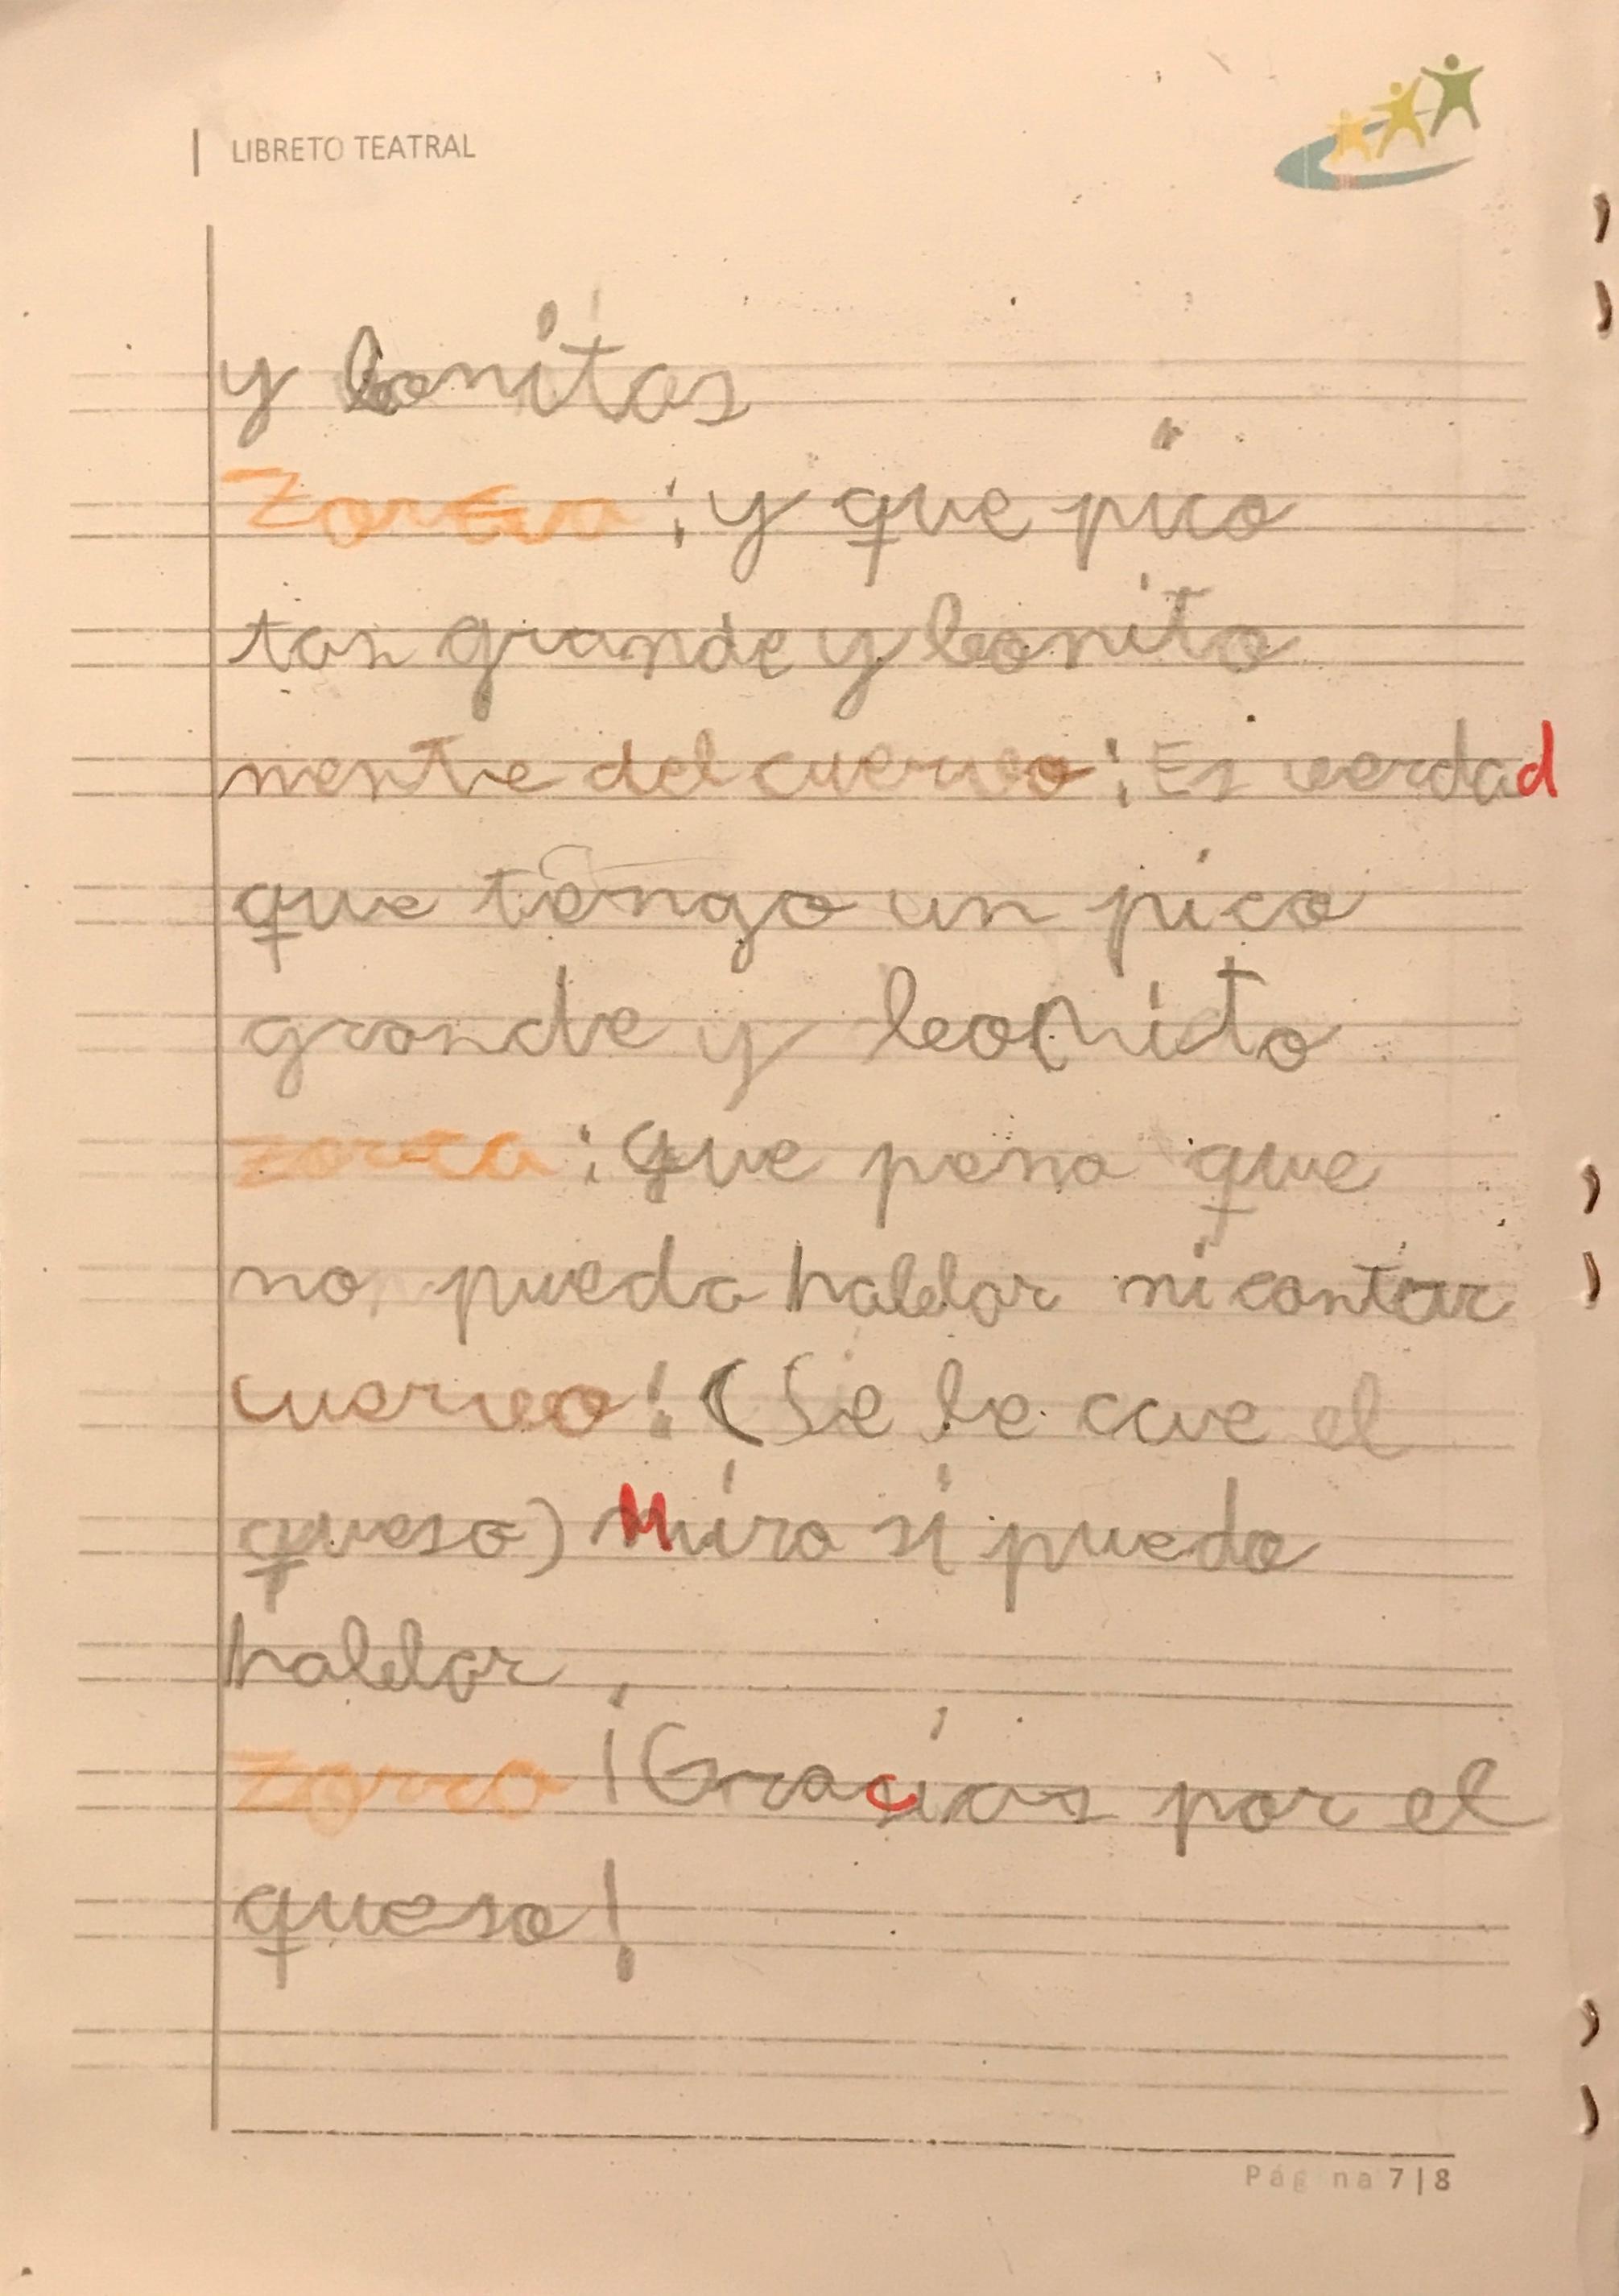 LIBRETO TEATRAL
y bonitas
Zorra: y que pico
tan grande y bonito
mente del cuervo: Es verdad
que tengo un pico
grande y bonito
zorra: que pena que
no pueda hablar ni cantar
cuervo: (Se le cae el
queso) Mira si puedo
hablar,
Zorra ¡Gracias por el
queso!
Página 7|8